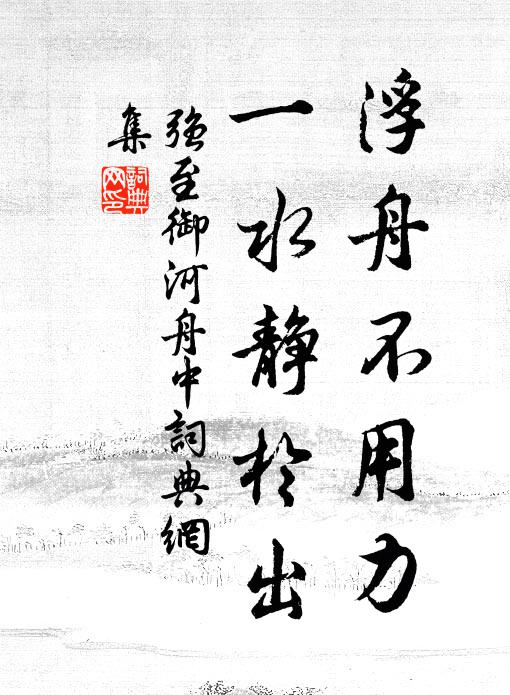 浮舟不用力
一水静於出
强至御河舟中詞典網
集
詞典网印